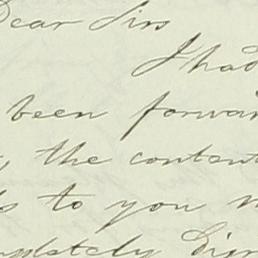 Dear Sirs
I had
been forwar
the content
to you
pletely Sign